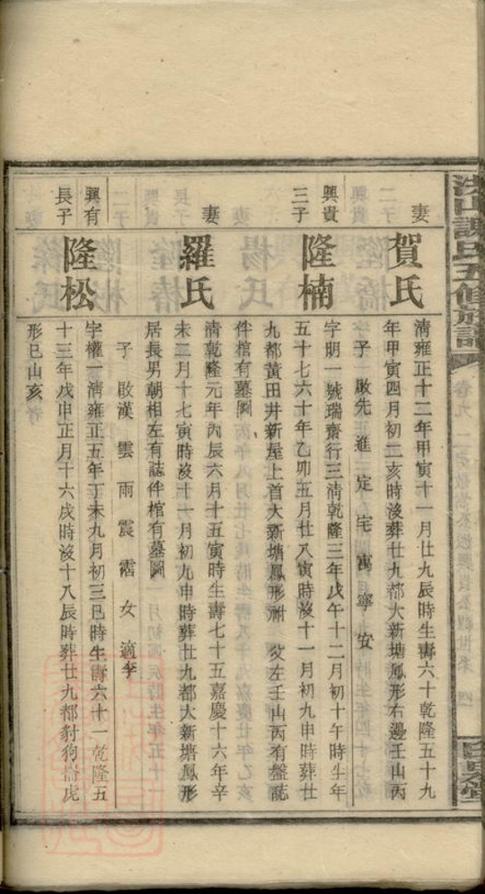 妻
賀氏
清雍正十二年甲寅十一月廿九辰時生壽六十乾隆五十九
年甲寅四月初二亥時沒葬廿九都大新塘鳳形右邊壬山丙
子啟先進定宅寓寧安
興貴
三子
隆楠
字期一號瑞齋行三清乾隆三年戊午十二月初十午時生年
五十七六十年乙卯五月廿八寅時沒十一月初九申時葬廿
九都黃田井新屋上首大新塘鳳形祔父左壬山丙有盤誌
伴棺有墓圖
妻
羅氏
清乾隆元年丙辰六月十五寅時生壽七十五嘉慶十六年辛
未二月十七寅時沒十一月初九申時葬廿九都大新塘鳳形
居長男朝相左有誌伴棺有墓圖
子啟漢雲雨震霑女適李
興有
長子
隆松
字權一清雍正五年丁未九月初三巳時生壽六十一乾隆五
十三年戊申正月十六戌時沒十八辰時葬廿九都豺狗虎
形巳山亥
謝氏五修族譜
卷九
四